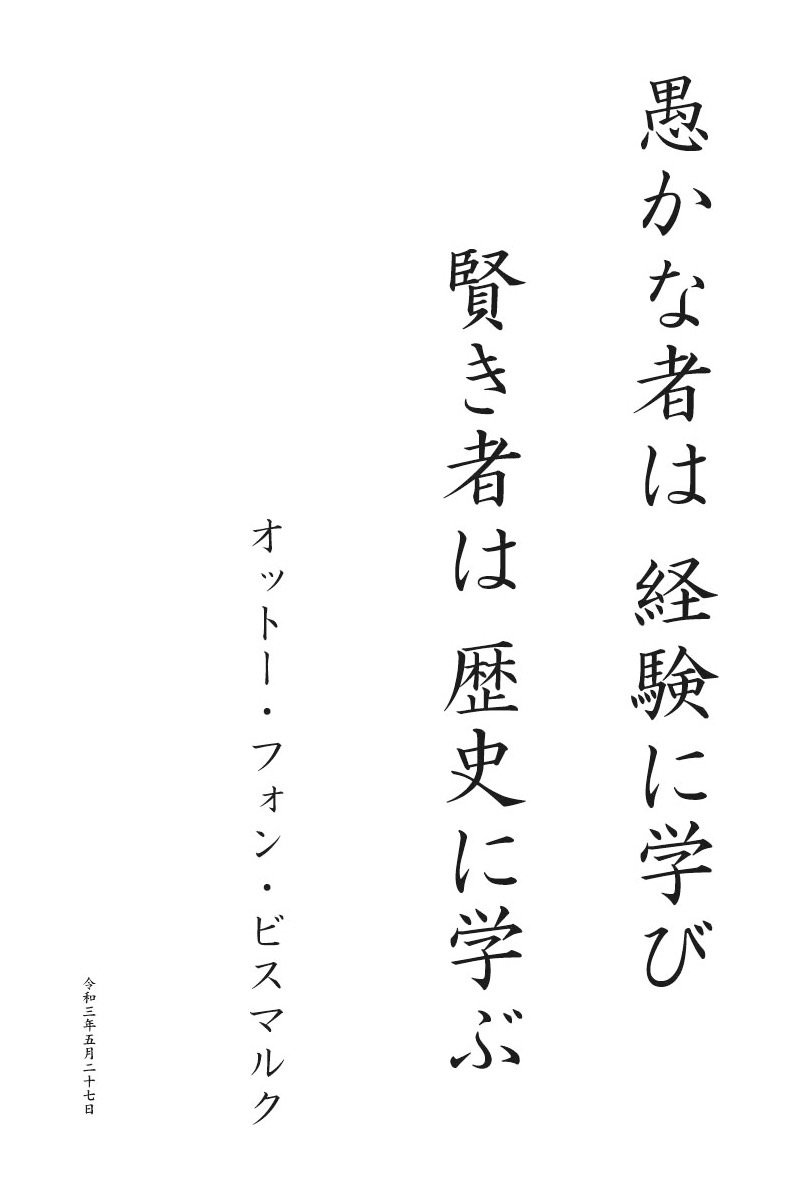 愚かな者は 経験に学び
賢き者は 歴史に学ぶ
オットー・フォン・ビスマルク
令和三年五月二十七日